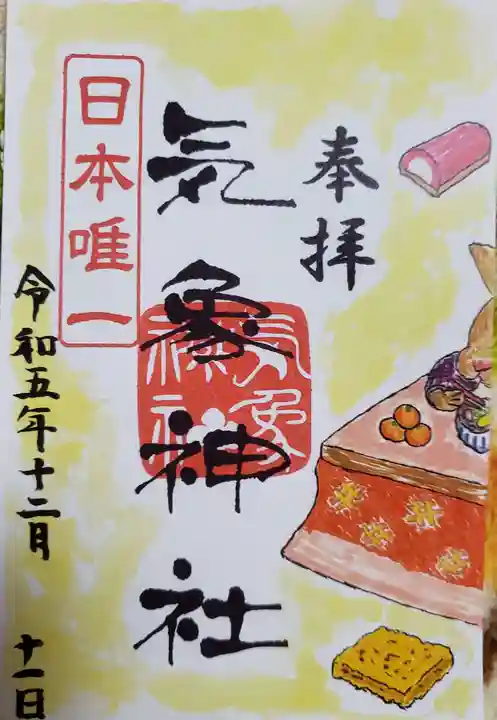 奉拝
気象神社
気象神社
日本唯一
令和五年十二月 十一日